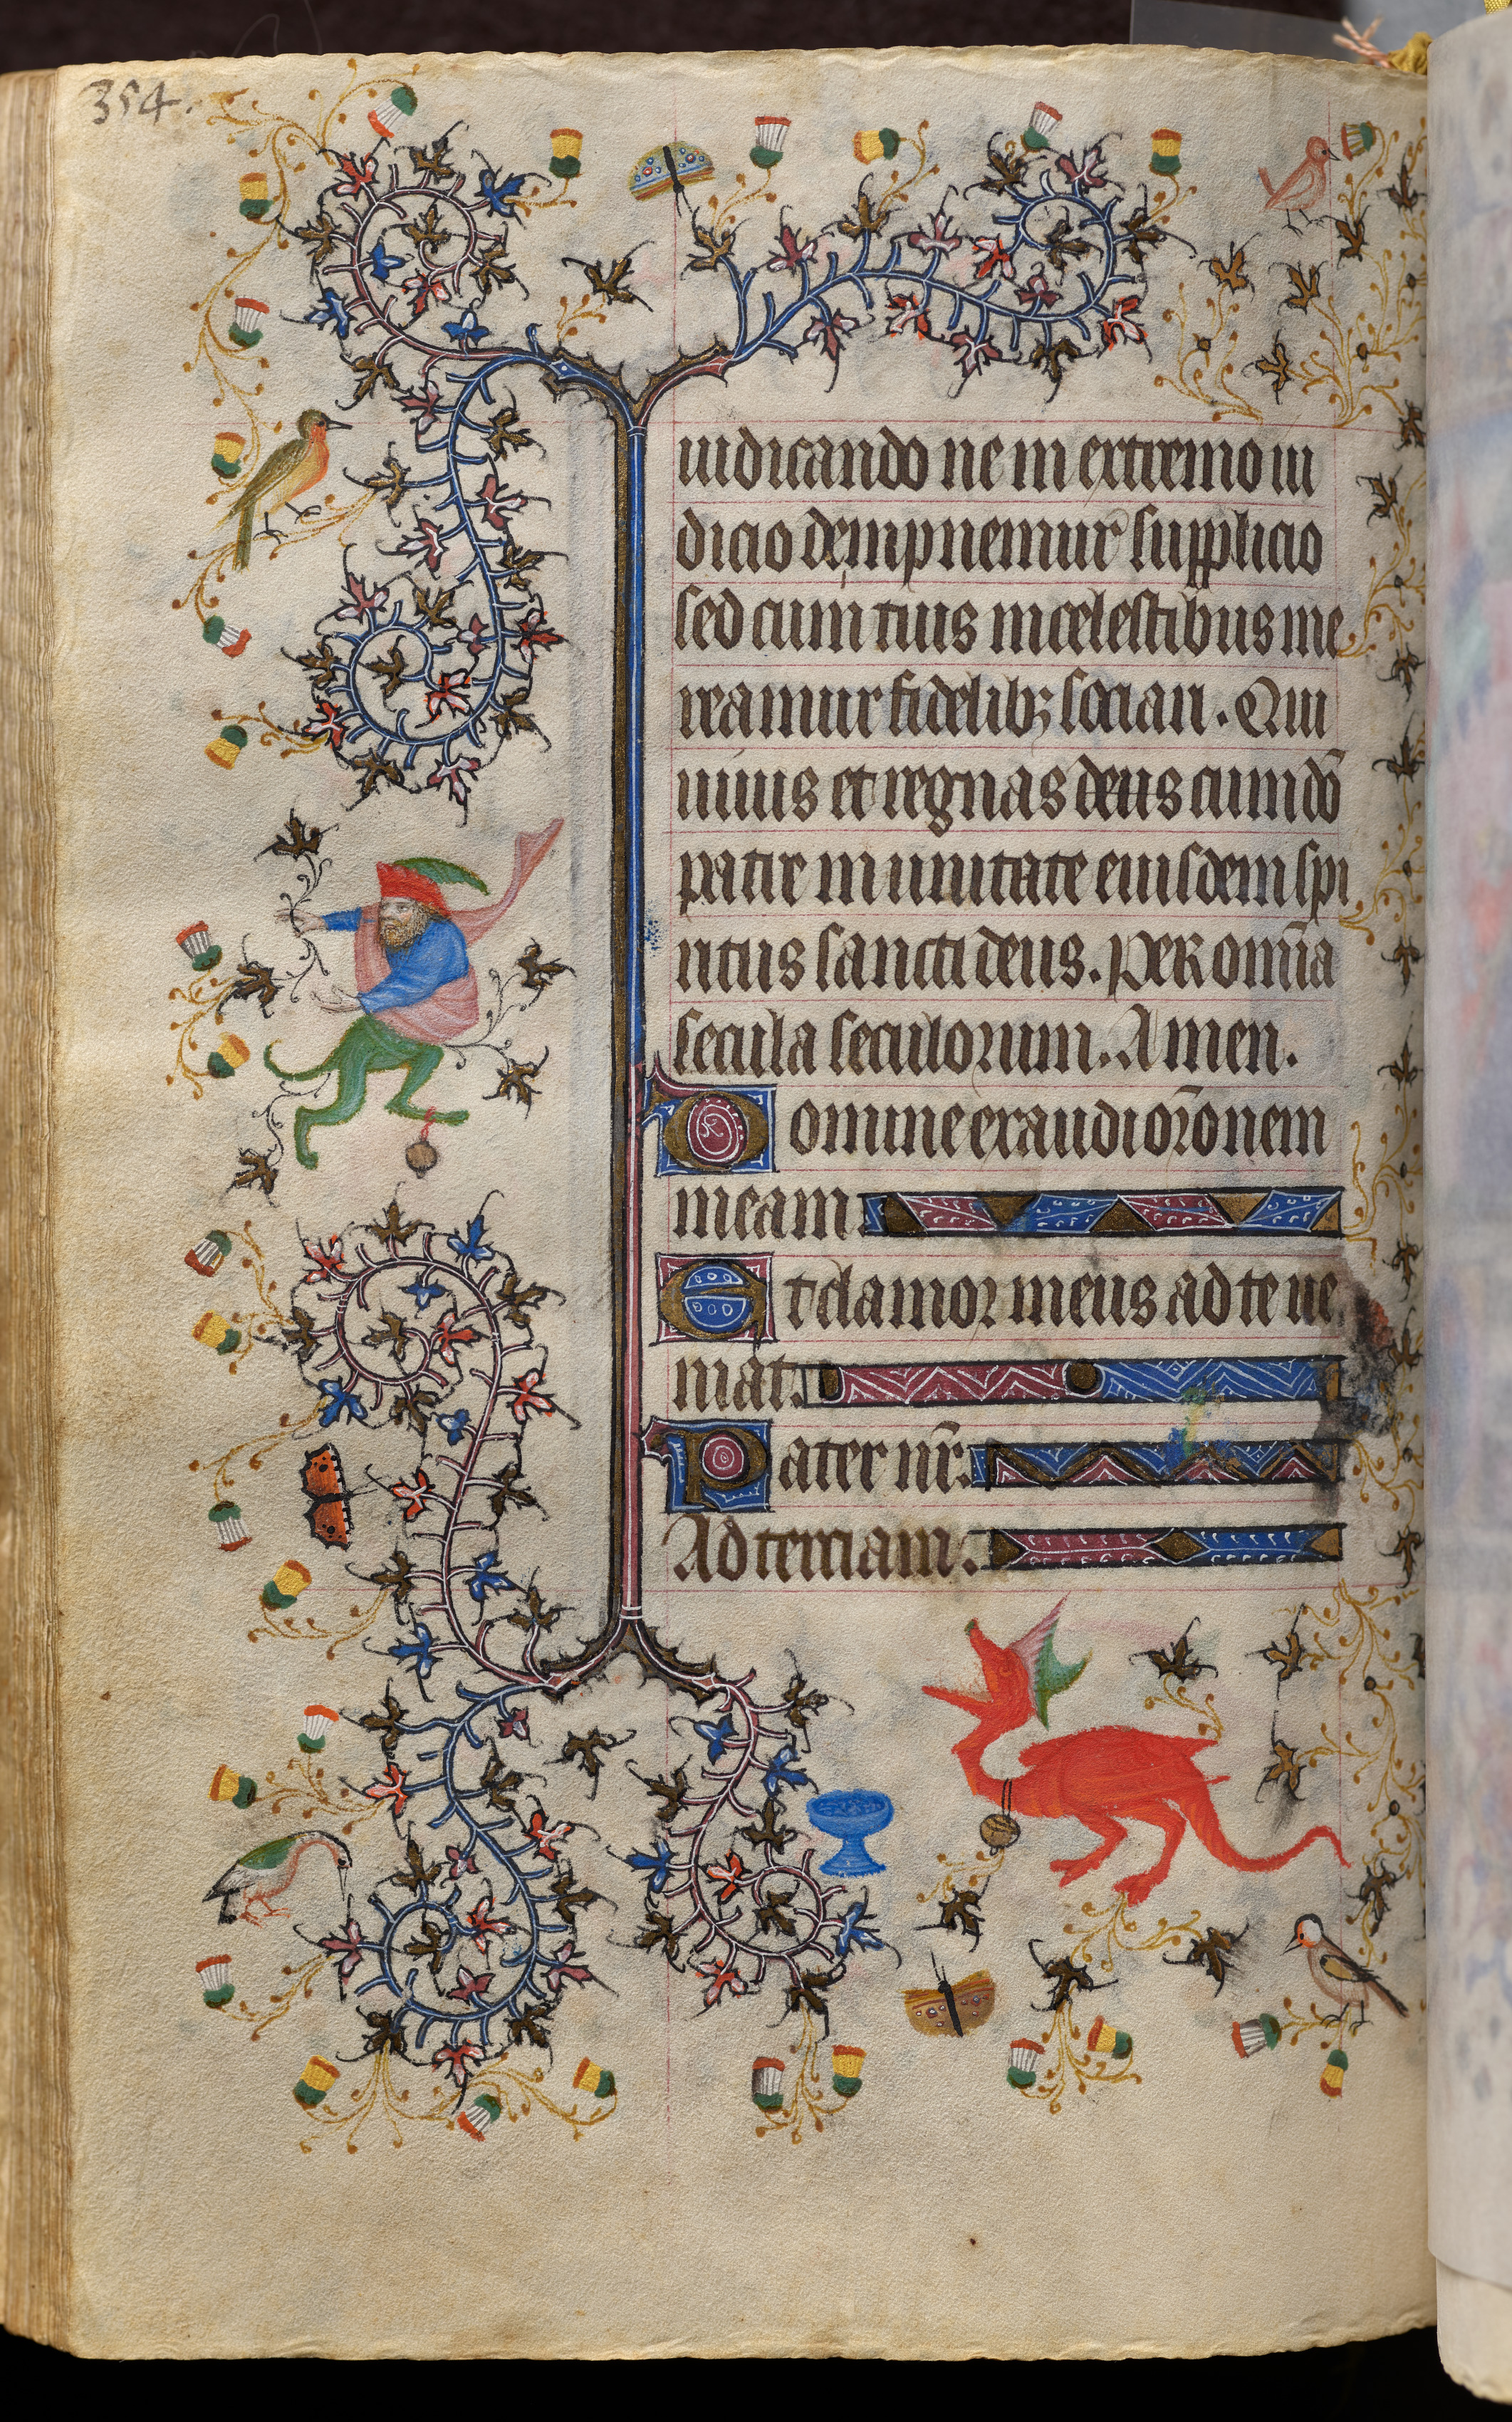 354.
iudicando ne in extremo iu
dicio dempnemur supplicio
sed cum tuis in celestibus me
reamur fidelibꝫ sociari. Qui
uiuis et regnas deus cum dō
patre in unitate eiusdem spi
ritus sancti deus. Per om̄ia
secula seculorum. Amen.
Domine exaudi or̄onem
meam.
Et clamor meus ad te ue
niat.
Pater nr̄.
Ad terciam.